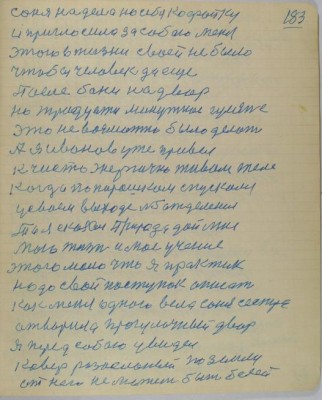 183
соня надела на себя кофточку
и пригласила за собою меня
этого в жизни своей не было
чтобы человек да еще
после бани на двор
на тридцати минутное гуляне
это невозможно было делать
А я Иванов уже привык
к чисто энергично живом теле
когда по порошком спускали
у своем выходе
Там сказал Природа дай мне
мое учение
этого мало что я практик
надо свой поступок описать
как меня одного вела соня сестра
отворила прогулочный двор
я перед собою увидел
ковер разосланный по земли
от него не может быть белей